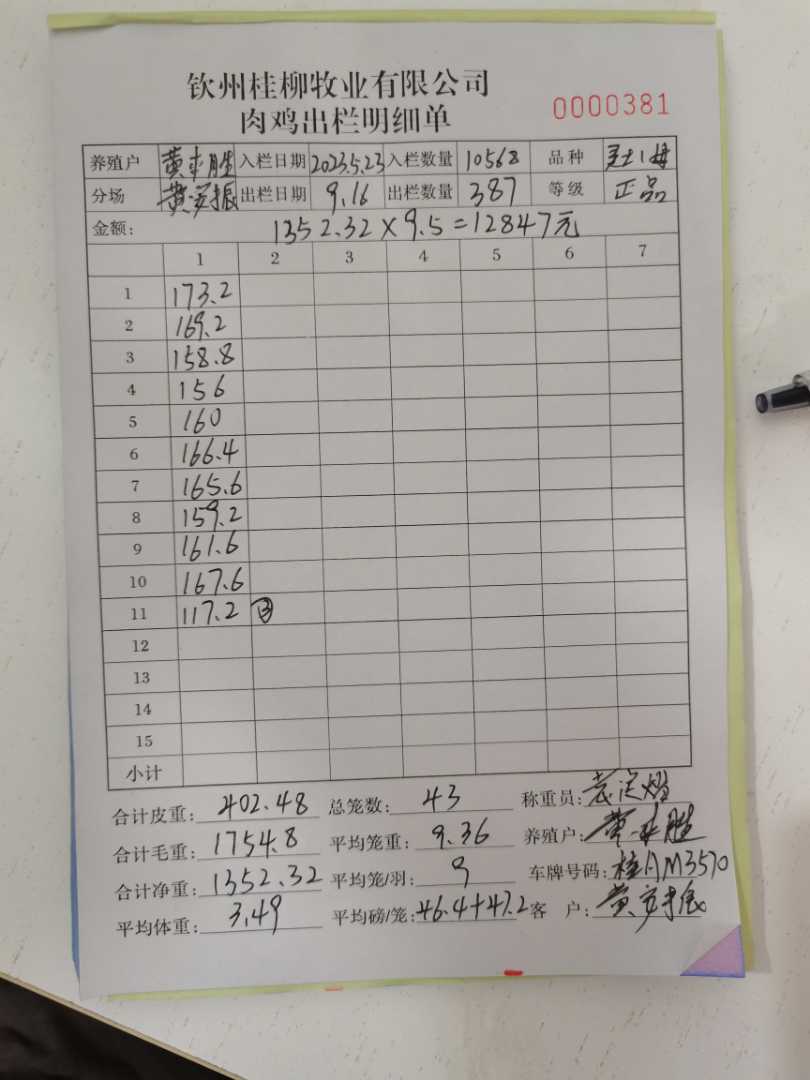 钦州桂柳牧业有限公司
肉鸡出栏明细单
0000381
养殖户 黄来胜 入栏日期 2023.5.23 入栏数量 10568 品种
分场 黄 振 出栏日期 9.16 出栏数量 387 等级 正品
金额: 1352.32×9.5=12847元
1 2 3 4 5 6 7
1 173.2
2 169.2
3 158.8
4 156
5 160
6 166.4
7 165.6
8 159.2
9 161.6
10 167.6
11 117.2 ③
12
13
14
15
小计
合计皮重: 402.48 总笼数: 43 称重员:
合计毛重: 1754.8 平均笼重: 9.36 养殖户: 黄来胜
合计净重: 1352.32 平均笼/羽: 9 车牌号码: 桂AM3570
平均体重: 3.49 平均磅/笼: 46.4+47.2 客 户: 黄 振